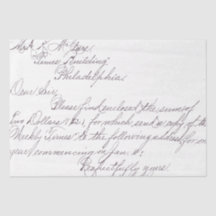 Times Building,
Philadelphia.
Dear Sir,
Please find enclosed the sum of
Two Dollars for which send a copy of the
Weekly Times to the following address for one
year commencing
Respectfully yours